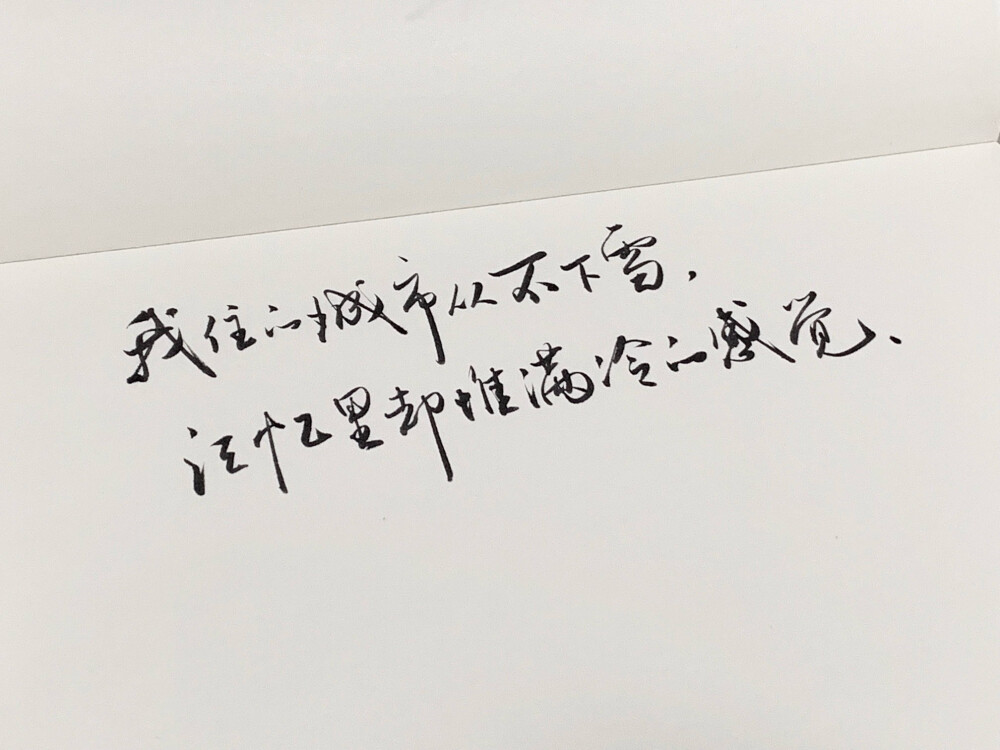 我住的城市从不下雪，
记忆里却堆满冷的感觉、